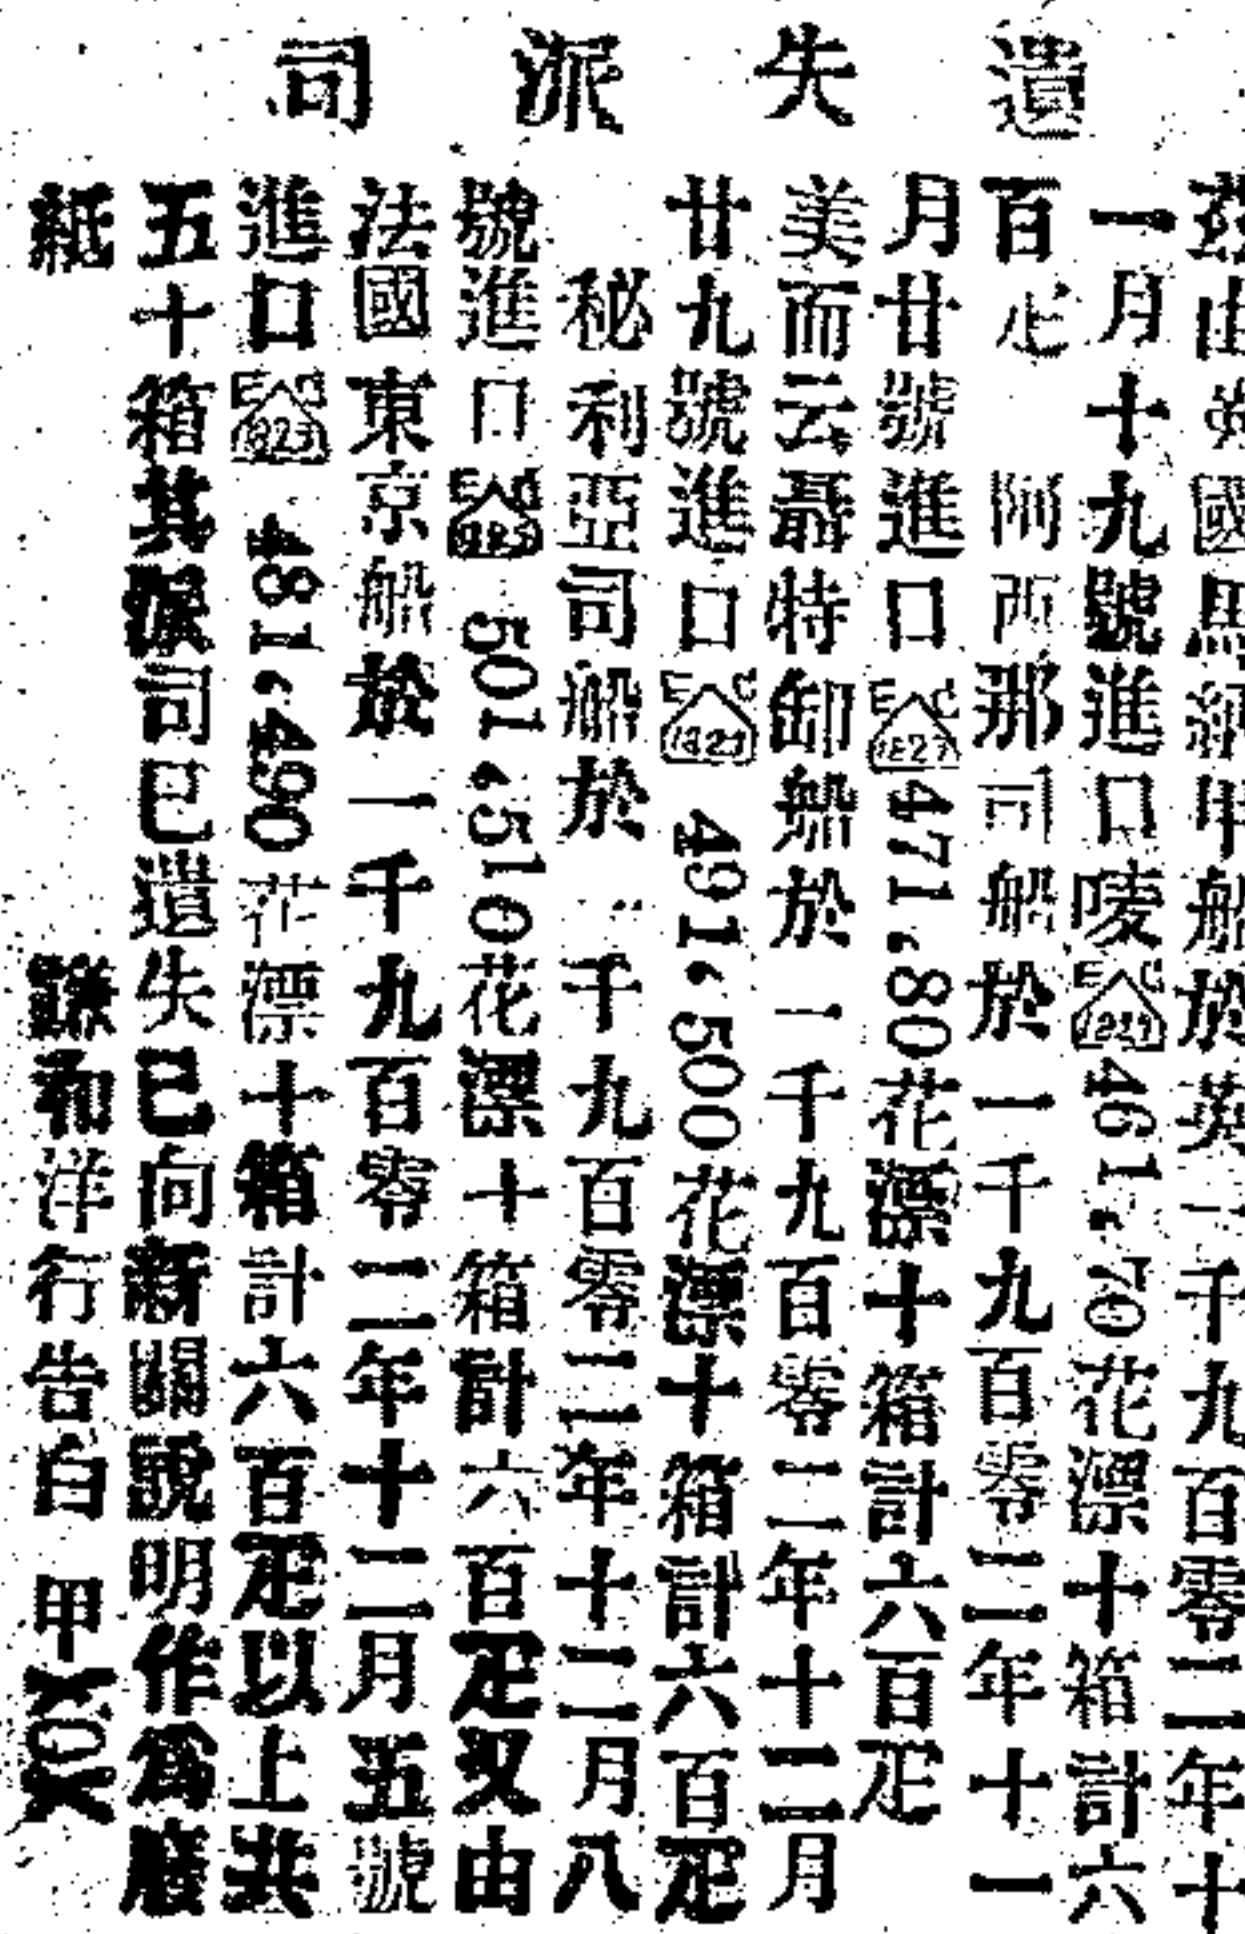 遺失派司
茲由英國馬納甲船於英一千九百零二年十
一月十九號進口嘜 E C 1829 461.70花漂十箱計六
百疋 阿西那司船於一千九百零二年十一
月廿號進口 E C 1827 471.80花漂十箱計六百疋
美而云聶特卸船於一千九百零二年十二月
廿九號進口 E C 1829 491.500花漂十箱計六百疋
秘利亞司船於 千九百零二年十二月八
號進口 E C 501.510花漂十箱計六百疋又由
法國東京船於一千九百零二年十二月五號
進口 E C 1823 481.490花漂十箱計六百疋以上共
五十箱其派司已遺失已向新關說明作爲廢
紙 鎌和洋行告白 甲